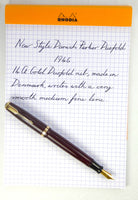 RHODIA
New Style Danish Parker Duofold
1966
14k Gold Duofold nib, made in
Denmark, writes with a very
smooth medium fine line